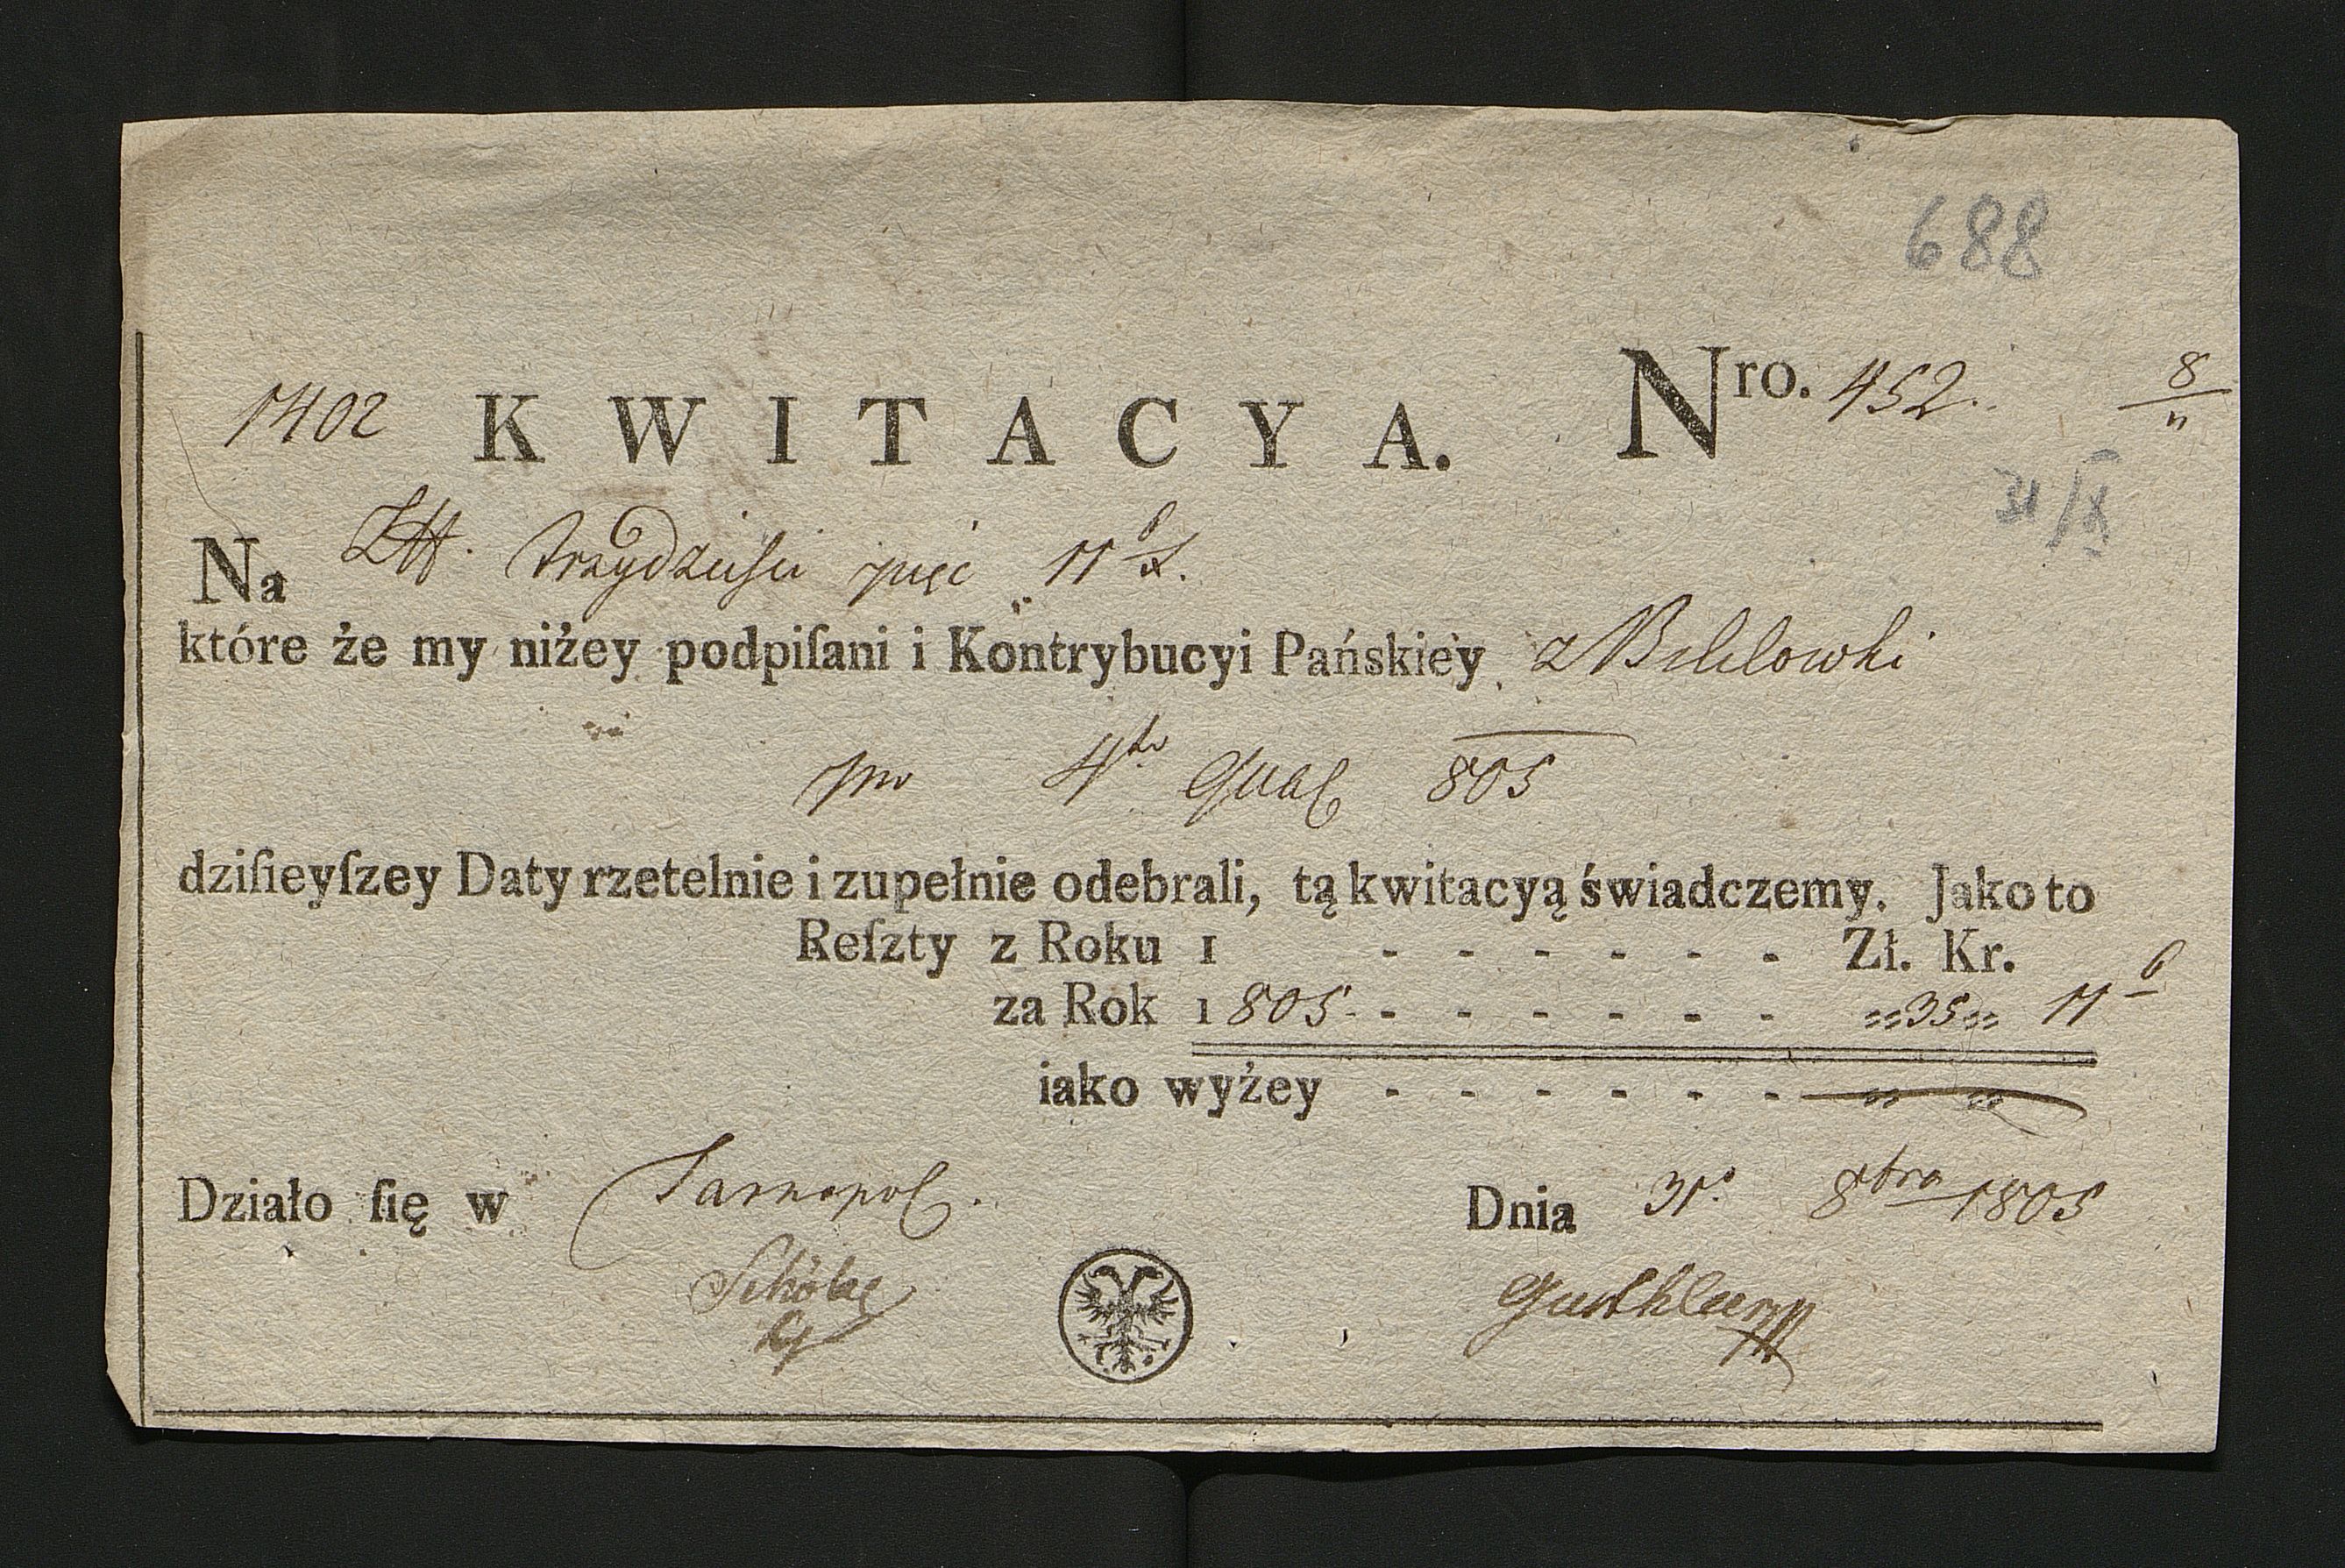 688
1402 KWITACYA. Nro. 452. 8/"
31/X
Na trzydziesci pięć 11
które że my niżey podpiſani i Kontrybucyi Pańskiey z
pro 4to 805
dziſieyſzey Daty rzetelnie i zupełnie odebrali, tą kwitacyą świadczemy. Jako to
Reſzty z Roku 1 - - - - - - Zł. Kr.
za Rok 1805 - - - - - - 35 11
iako wyżey - - - - - -
Działo ſię w Tarnopol. Dnia 31. 8bra 1805